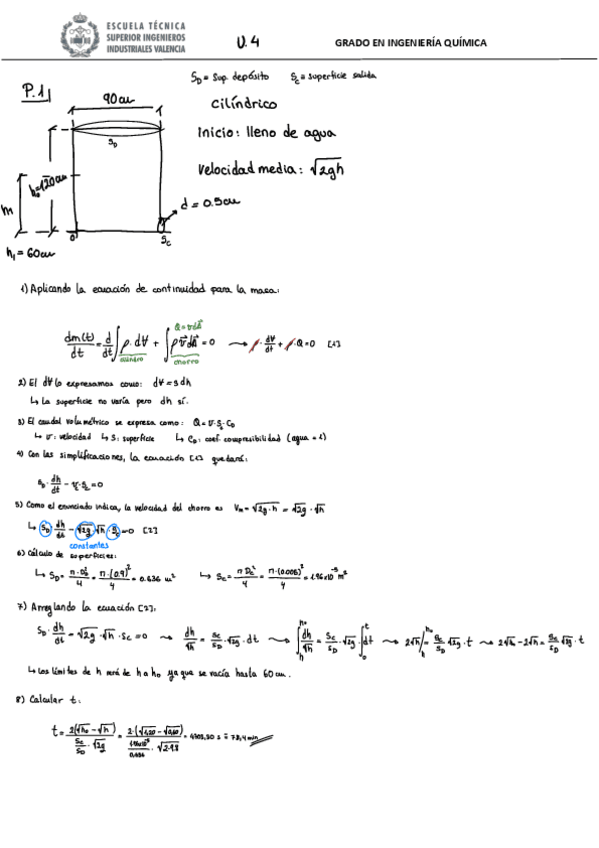 ESCUELA TÉCNICA
SUPERIOR INGENIEROS
INDUSTRIALES VALENCIA
U.4
GRADO EN INGENIERÍA QUÍMICA
P.1
S_D = Sup. depósito   S_C = superficie salida
90cm
Cilíndrico
S_D
Inicio: lleno de agua
h₀=120cm
Velocidad media: √2gh
m
d = 0.5cm
0
S_C
h₁ = 60cm
1) Aplicando la ecuación de continuidad para la masa:
Q = v·dA
dm(t)/dt = d/dt ∫ρ·dV + ∫ρ v dA = 0 → ρ·dV/dt + ρ·Q = 0 [1]
cilindro   chorro
2) El dV lo expresamos como: dV = s dh
↳ La superficie no varía pero dh sí.
3) El caudal volumétrico se expresa como: Q = v·S_C·C_D
↳ v: velocidad ↳ S: superficie ↳ C_D: coef. compresibilidad (agua = 1)
4) Con las simplificaciones, la ecuación [1] quedará:
S_D·dh/dt - v·S_C = 0
5) Como el enunciado indica, la velocidad del chorro es V_m = √2g·h = √2g·√h
↳ S_D·dh/dt - √2g·√h·S_C = 0 [2]
constantes
6) Cálculo de superficies:
↳ S_D = π·D_D²/4 = π·(0.9)²/4 = 0.636 m² ↳ S_C = π D_C²/4 = π·(0.005)²/4 = 1.96x10⁻⁵ m²
7) Arreglando la ecuación [2]:
S_D·dh/dt - √2g·√h·S_C = 0 → dh/√h = S_C/S_D·√2g·dt → ∫dh/√h = S_C/S_D·√2g·∫dt → 2√h|_h^h₀ = S_C/S_D √2g·t → 2√h₀ - 2√h = S_C/S_D √2g·t
↳ Los límites de h será de h a h₀ ya que se vacía hasta 60 cm.
8) Calcular t: